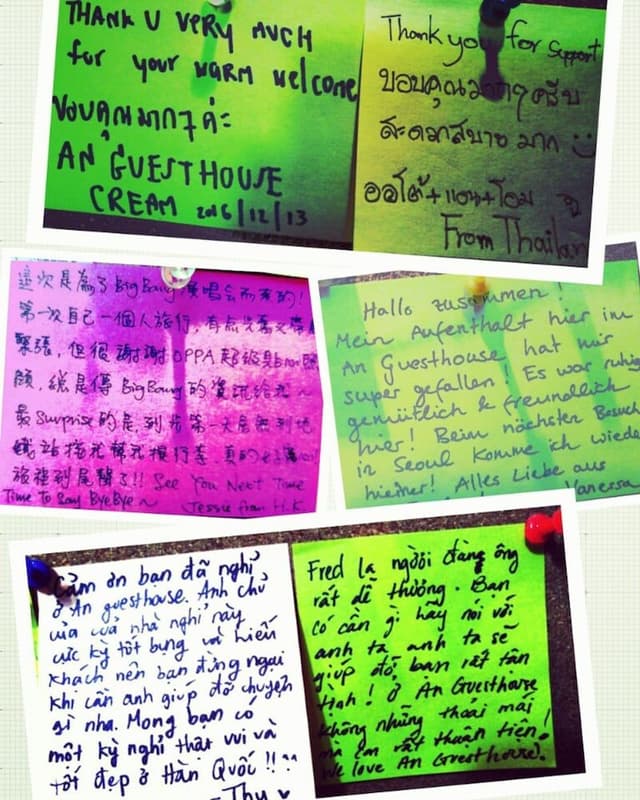 THANK U VERY MUCH
for your WARM Welcome
ขอบคุณมากๆ ค่ะ
AN GUESTHOUSE
CREAM 2016/12/13
Thank you for support
ขอบคุณมากๆครับ
สะดวกสบาย มาก
ออโต้+แอน+โอม
From Thailan
這次是為了BigBang演唱會而來的!
第一次自己一個人旅行,有點
緊張,但很謝謝OPPA
顧,總是傳BigBang的資訊給我~
最Surprise的是,到步第一天
鐵站
旅程到尾聲了!! See You Next Time
Time To Say ByeBye~ Jessie from H.K.
Hallo zusammen!
Mein Aufenthalt hier im
An Guesthouse hat mir
super gefallen! Es war ruhig
gemütlich & freundlich
hier! Beim nächsten Besuch
in Seoul komme ich wieder
hierher! Alles Liebe aus
Vanessa
Cảm ơn bạn đã nghỉ
ở An guesthouse. Anh chủ
của cuả nhà nghỉ này
cực kỳ tốt bụng và hiếu
khách nên bạn đừng ngại
khi cần anh giúp đỡ chuyện
gì nha. Mong bạn có
một kỳ nghỉ thật vui và
tốt đẹp ở Hàn Quốc!!
- Thu
Fred là người đàng ông
rất dễ thương. Bạn
có cần gì hãy nói với
anh ta anh ta sẽ
giúp đỡ bạn rất tận
tình! Ở An Guesthouse
không những thoải mái
mà còn rất thuận tiện!
We love An Guesthouse).